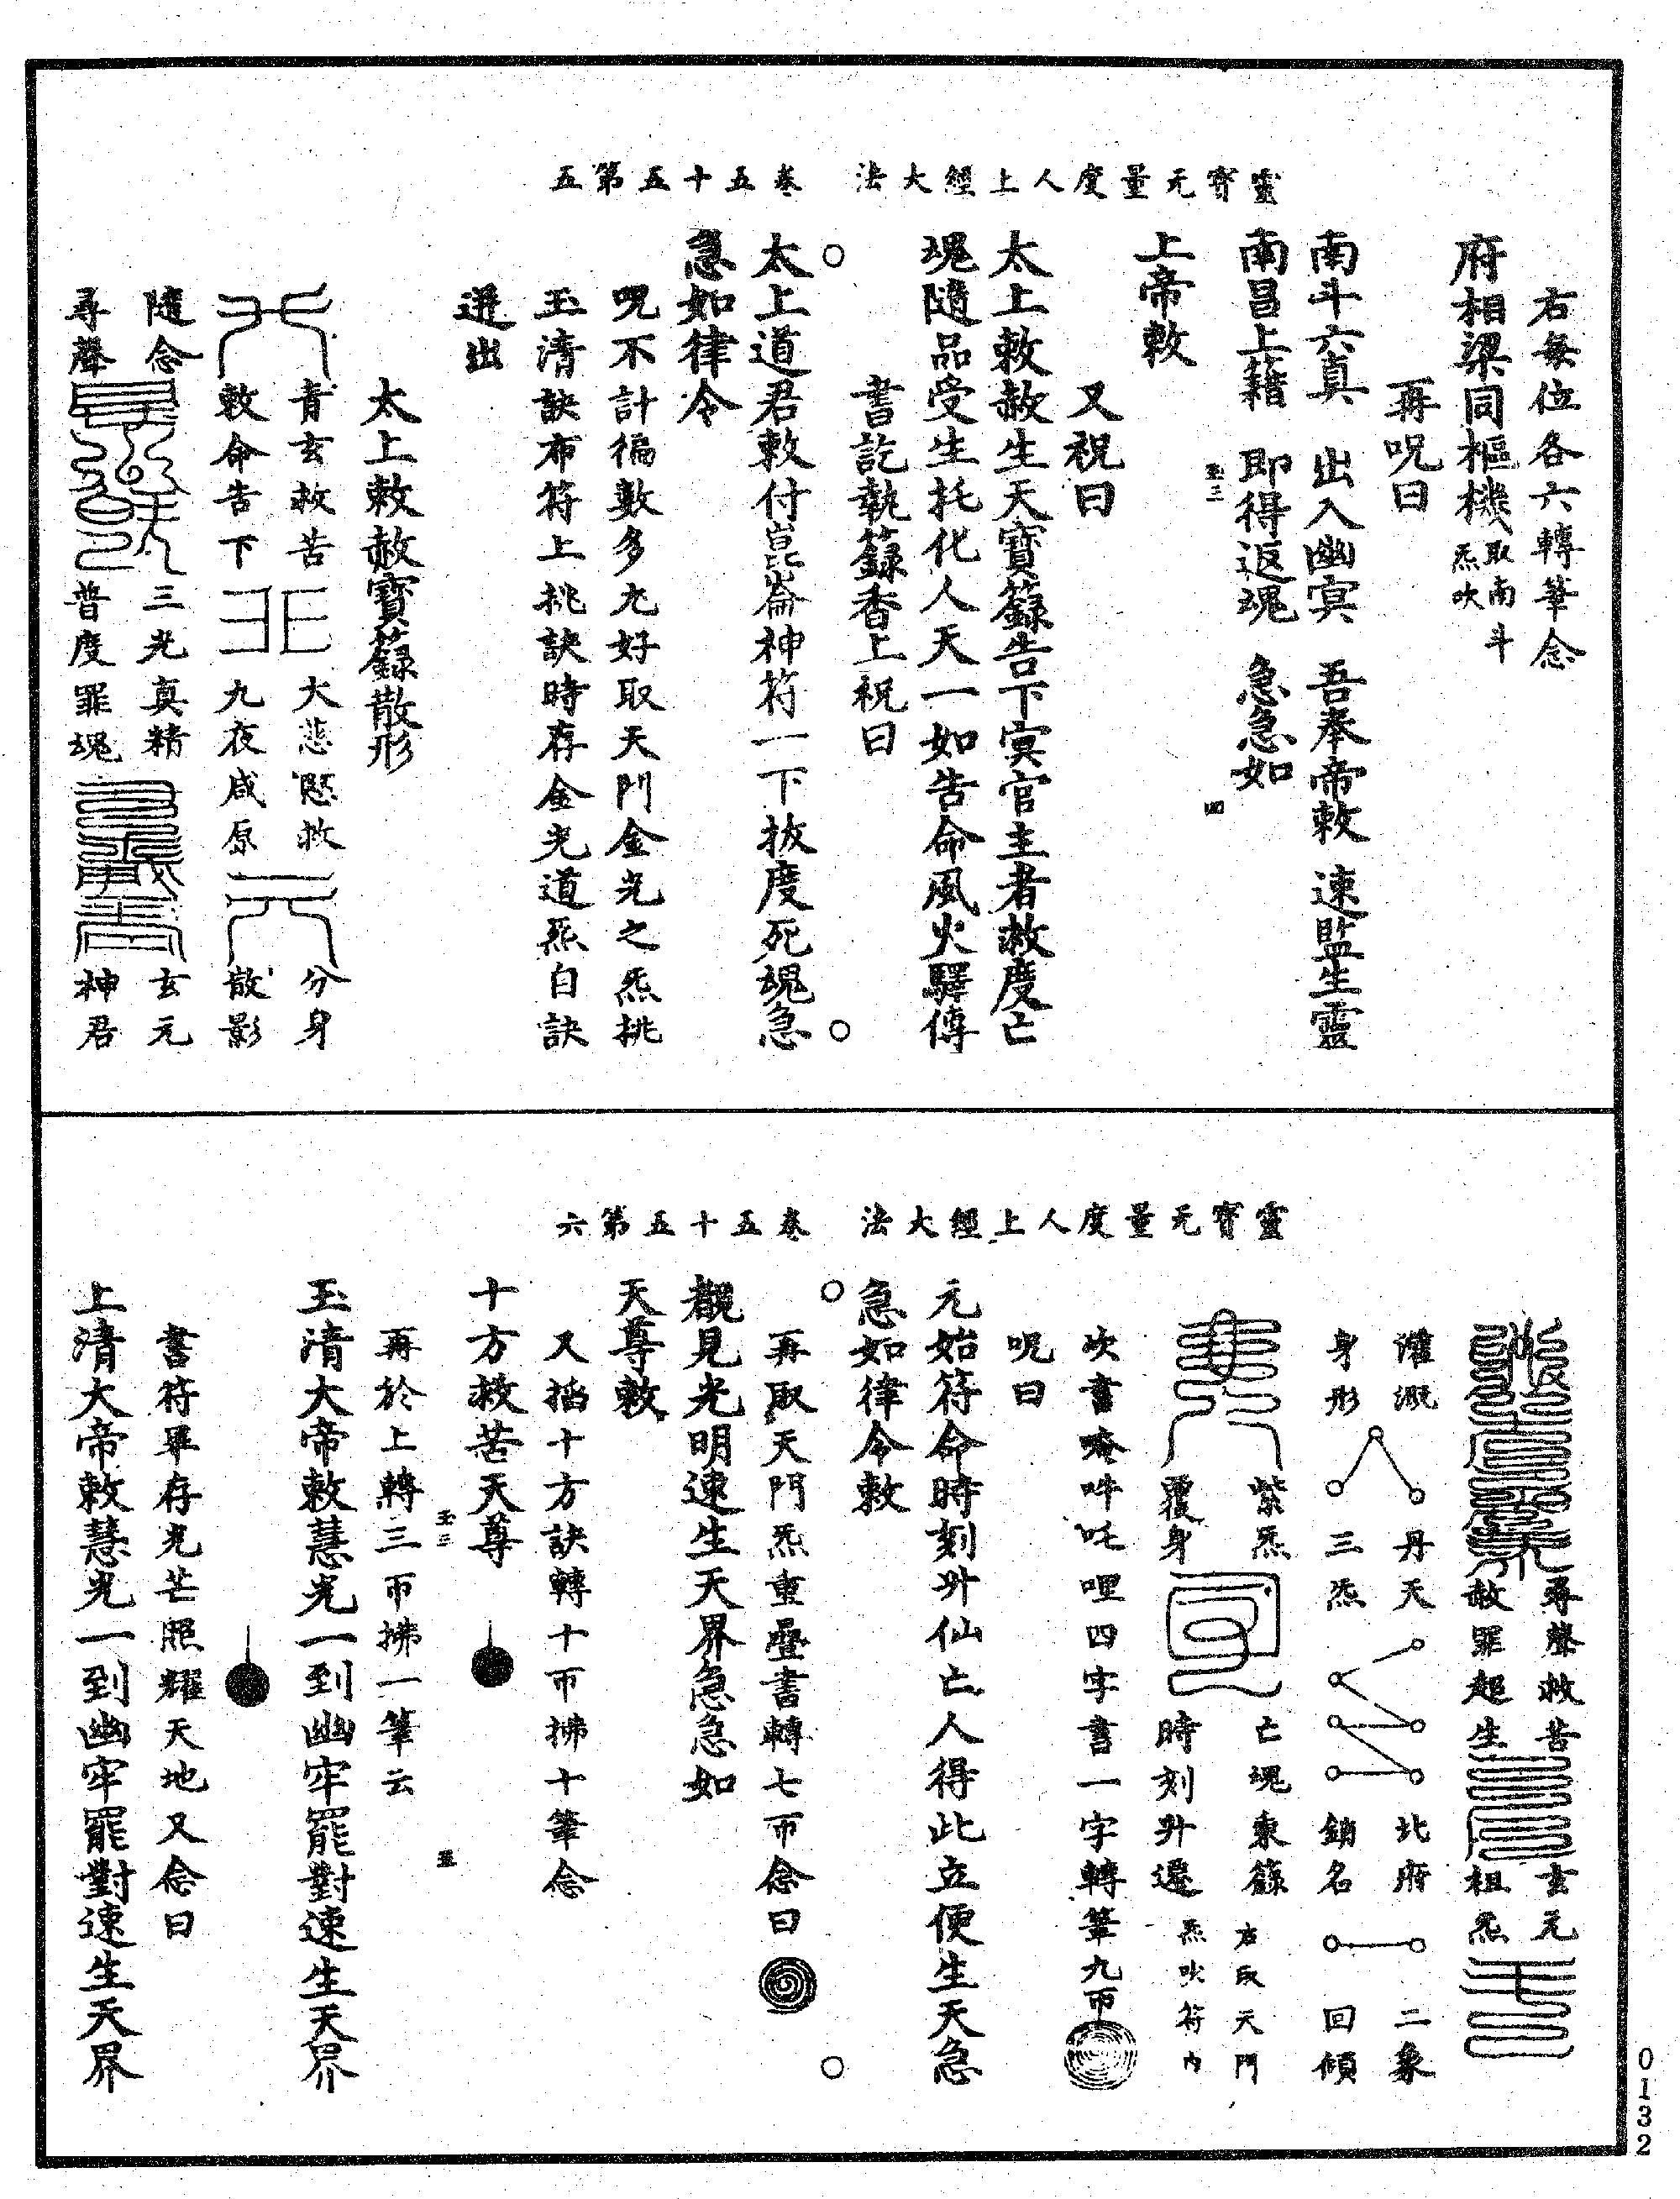 靈寶无量度人上經大法　卷五十五第五
右每位各六轉筆念
府相梁同樞機取南斗炁吹
再呪曰
南斗六真　出入幽冥　吾奉帝敕　速監生靈
南昌上籍　即得返魂　急急如
玉三　四
上帝敕
又祝曰
太上敕赦生天寶籙告下冥官主者救度亡
魂隨品受生托化人天一如告命風火驛傳
書訖執籙香上祝曰
太上道君敕付崑崙神符一下拔度死魂急
急如律令
呪不計徧數多尤好取天門金光之炁挑
玉清訣布符上挑訣時存金光道炁自訣
迸出
太上敕赦寶籙散形
青玄救苦　大悲愍救　分身
敕命告下　九夜咸原　散影
隨念　三光真精　玄元
尋聲　普度罪魂　神君
靈寶无量度人上經大法　卷五十五第六
尋聲救苦　玄元
赦罪起生　祖炁
灌溉　丹天　北府　二象
身形　三炁　銷名　回傾
紫炁　亡魂東籙　右取天門
覆身　時刻升遷　炁吹符內
吹書唵吽吒哩四字書一字轉筆九帀
呪曰
元始符命時刻升仙亡人得此立便生天急
急如律令敕
再取天門炁重疊書轉七帀念曰
觀見光明速生天界急急如
天尊敕
又掐十方訣轉十帀拂十筆念
十方救苦天尊
玉三　五
再於上轉三帀拂一筆云
玉清大帝敕慧光一到幽牢罷對速生天界
書符畢存光芒照耀天地又念曰
上清大帝敕慧光一到幽牢罷對速生天界
0132